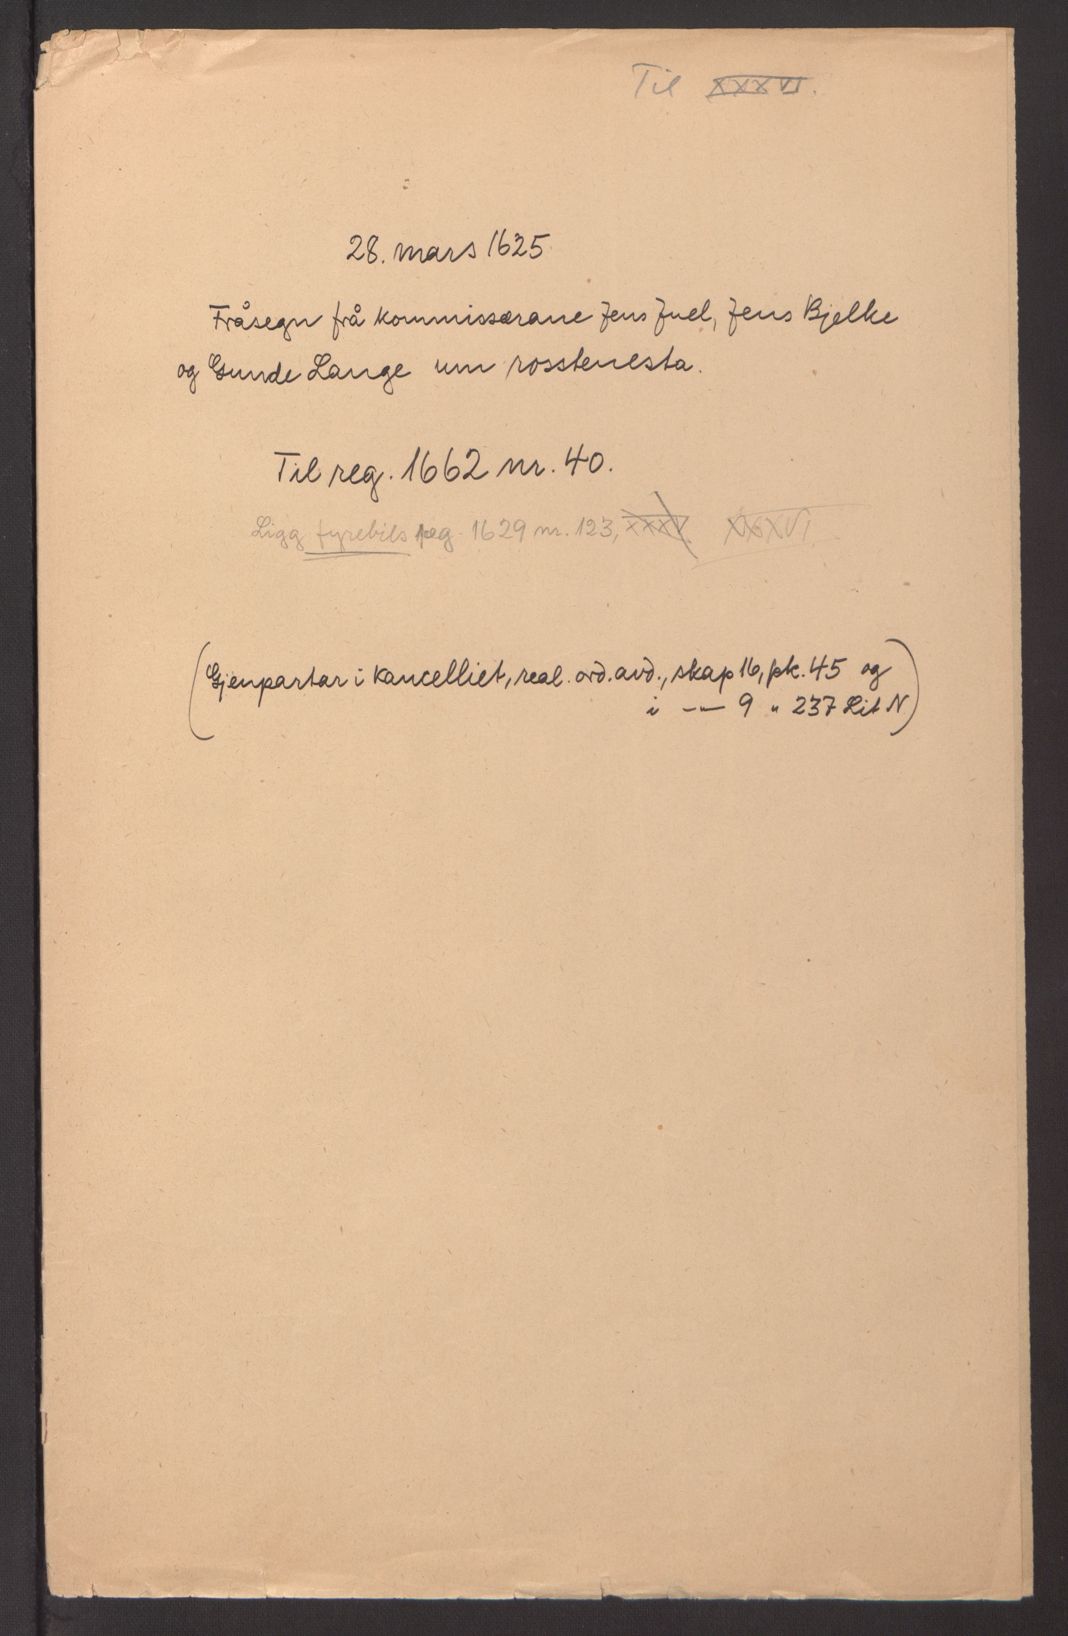 Til XXXVI.
28. mars 1625
Fråsegn frå kommissærane Jens Juel, Jens Bjelke
og Gunde Lange um rosstenesta.
Til reg. 1662 nr. 40.
Ligg fyrebils reg. 1629 nr. 123, XXXV. XXXVI
(Gjenpartar i Kancelliet, real. ord. avd., skap 16, pk. 45 og
i -"- 9 " 237 Lit N)